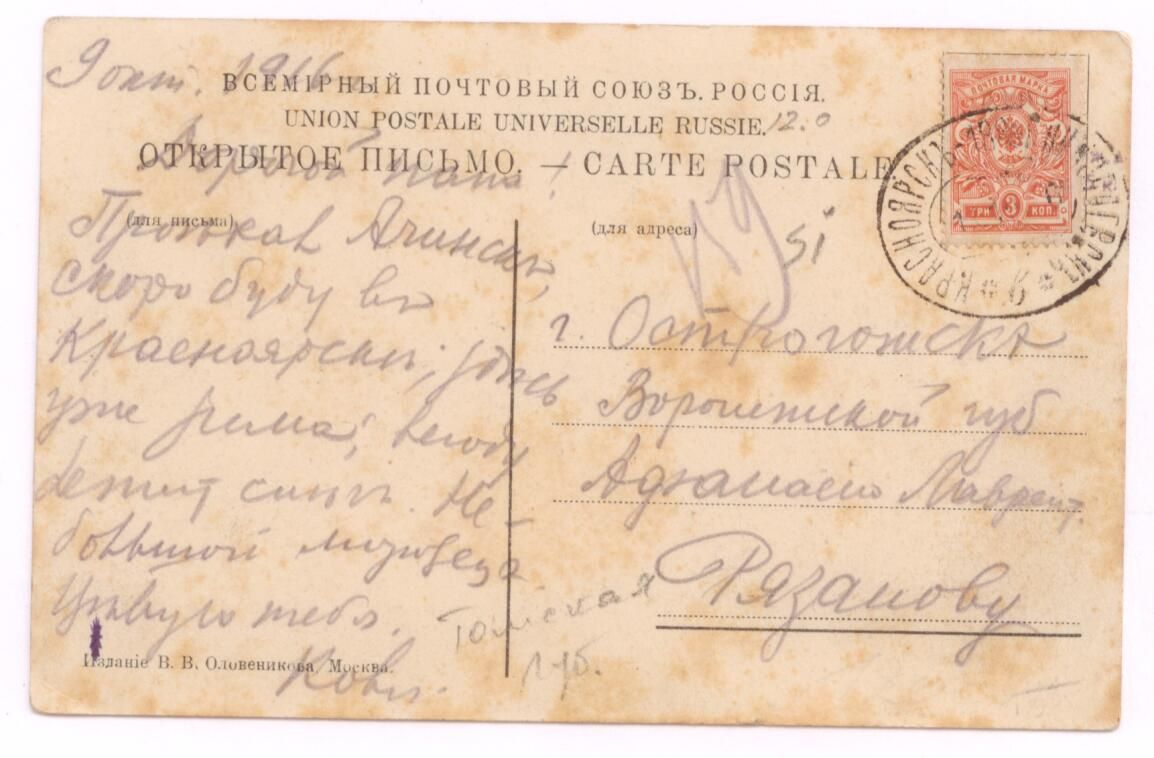 9 окт. 1916
ВСЕМІРНЫЙ ПОЧТОВЫЙ СОЮЗЪ. РОССІЯ.
UNION POSTALE UNIVERSELLE RUSSIE.
12.0
ОТКРЫТОЕ ПИСЬМО. — CARTE POSTALE
(для письма)
(для адреса)
Дорогой папа!
Проѣхал Ачинскъ,
скоро буду въ
Красноярскѣ; здѣсь
уже зима; всюду
лежит снѣгъ. Не-
большой морозец
Цѣлую тебя.
ПОЧТОВАЯ МАРКА
ТРИ 3 КОП.
КРАСНОЯРСКЪ
51
г. Острогожскъ
Воронежской губ
Афанасію Лаврент.
Рязанову
Томская
губ.
Изданіе В. В. Оловеникова, Москва.